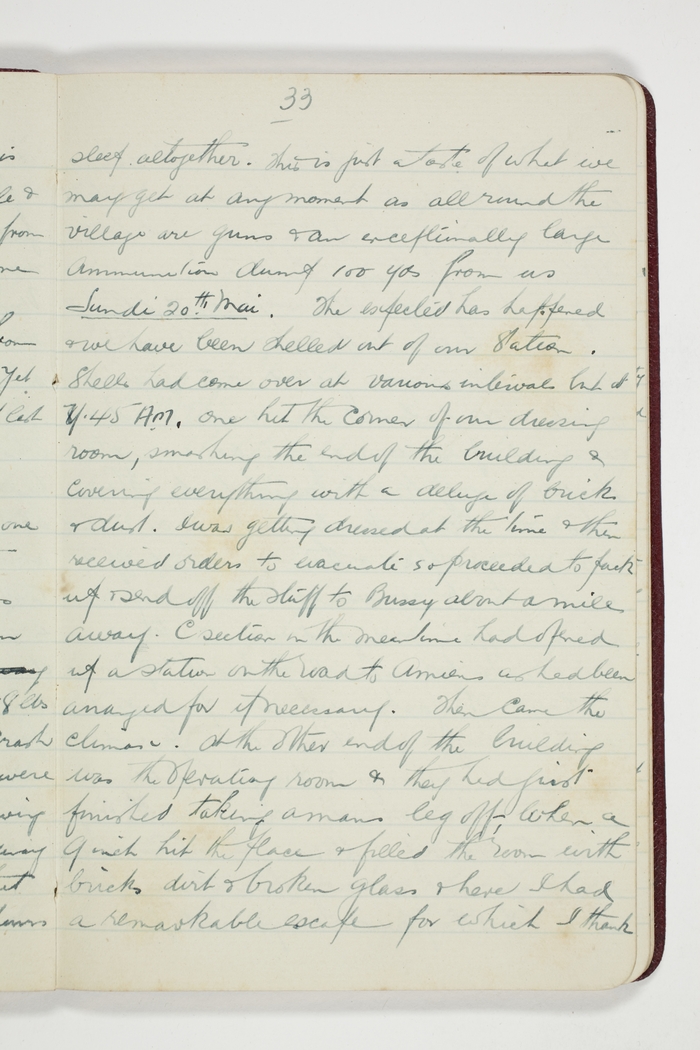 33
sleep altogether. This is just a taste of what we
may get at any moment as all round the
village are guns & an exceptionally large
ammunition dump 100 yds from us
Lundi 20th Mai. The expected has happened
& we have been shelled out of our Station.
Shells had come over at various intervals but at
7.45 AM. one hit the corner of our dressing
room, smashing the end of the building &
covering everything with a deluge of brick
& dust. I was getting dressed at the time & then
received orders to evacuate so proceeded to pack
up & send off the stuff to Bussy about a mile
away. C section in the meantime had opened
up a station on the road to Amiens as had been
arranged for if necessary. Then came the
climax. At the other end of the building
was the operating room & they had just
finished taking a mans leg off, when a
9 inch hit the place & filled the room with
bricks dirt & broken glass & here I had
a remarkable escape for which I thank
is
from
one
yet
last
one
8 lbs
were